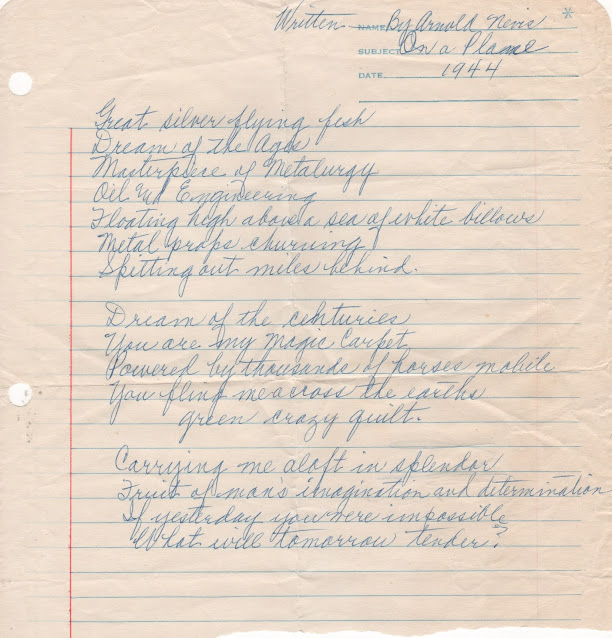 Written NAME By Arnold Nevis *
SUBJECT On a Plane
DATE 1944
Great silver flying fish
Dream of the Ages
Masterpiece of Metalurgy
Oil and Engineering
Floating high above a sea of white billows
Metal props churning
Spitting out miles behind.
Dream of the centuries
You are my Magic Carpet
Powered by thousands of horses mobile
You fling me across the earths
green crazy quilt.
Carrying me aloft in splendor
Fruit of man's imagination and determination
If yesterday you were impossible
What will tomorrow tender?